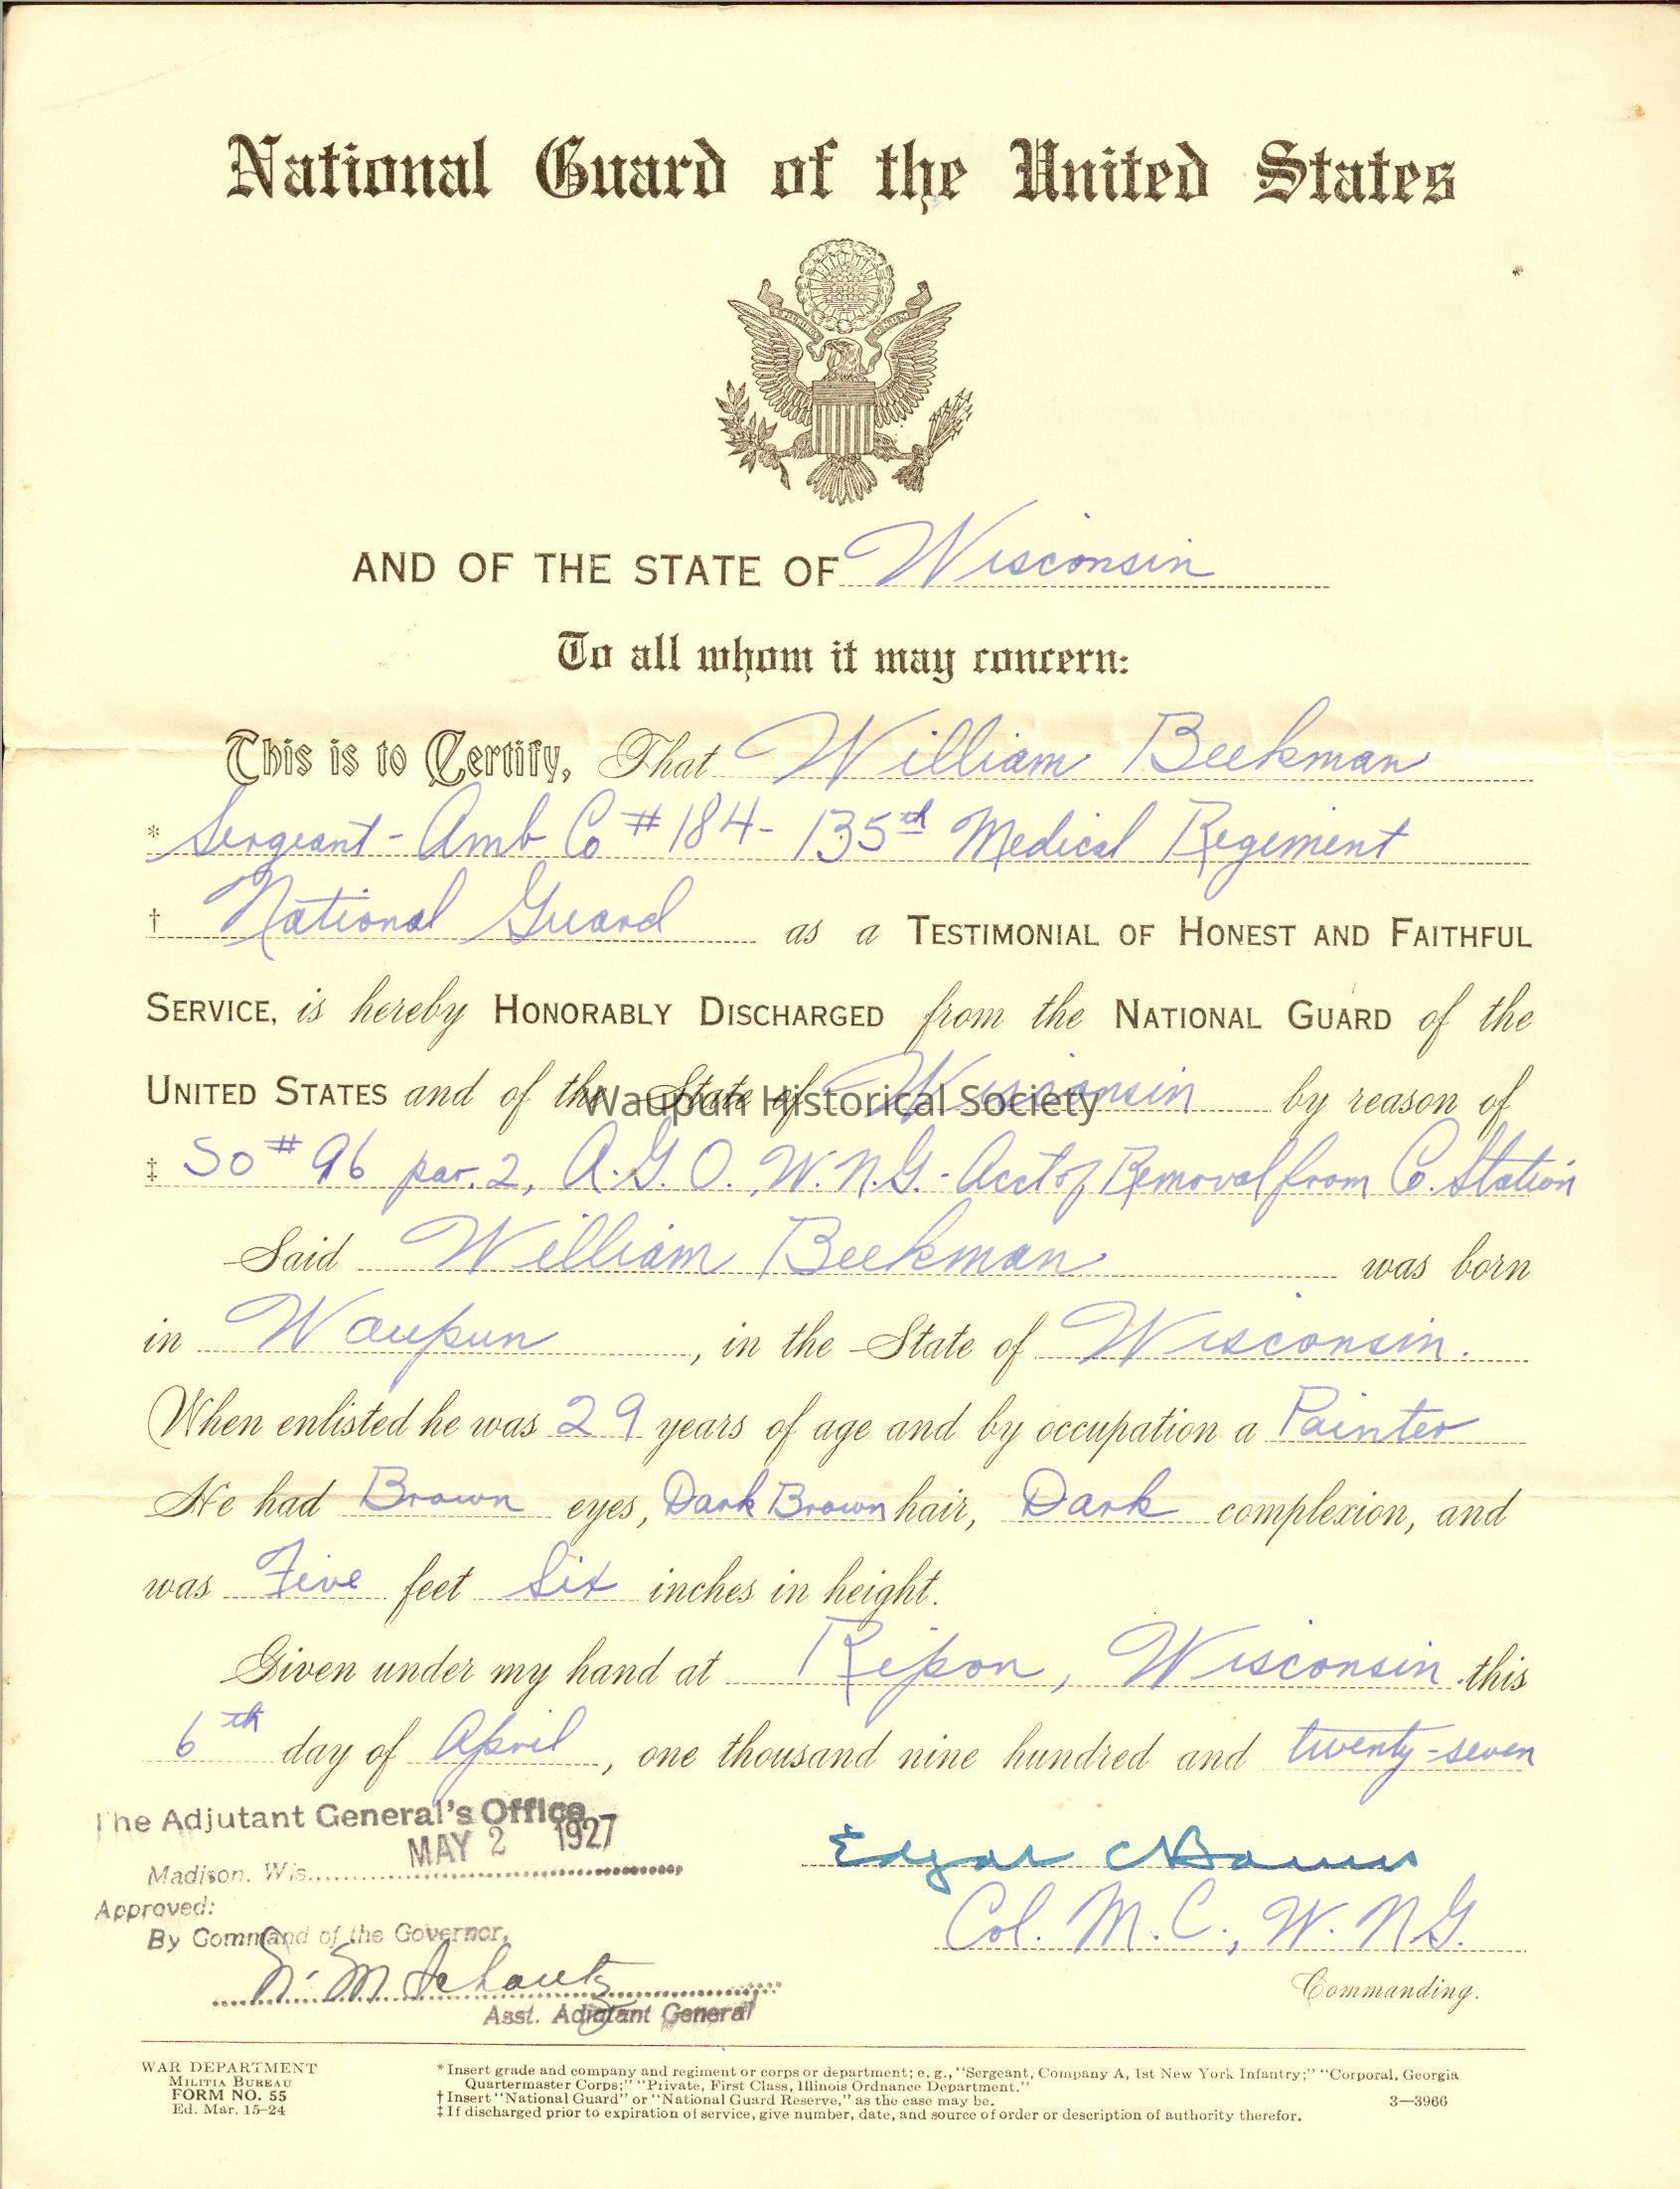 National Guard of the United States
AND OF THE STATE OF Wisconsin
To all whom it may concern:
This is to Certify, That William Beekman
* Sergeant - Amb Co # 184 - 135th Medical Regement
† National Guard as a TESTIMONIAL OF HONEST AND FAITHFUL
SERVICE, is hereby HONORABLY DISCHARGED from the NATIONAL GUARD of the
UNITED STATES and of the State of Wisconsin by reason of
Waupun Historical Society
‡ SO # 96 par. 2, A.G.O., W.N.G. - Acct of Removal from Co. Station
Said William Beekman was born
in Waupun, in the State of Wisconsin.
When enlisted he was 29 years of age and by occupation a Painter
He had Brown eyes, Dark Brown hair, Dark complexion, and
was Five feet Six inches in height.
Given under my hand at Ripon, Wisconsin this
6th day of April, one thousand nine hundred and twenty-seven
The Adjutant General's Office
MAY 2 1927
Madison, Wis.
Approved:
By Command of the Governor,
Asst. Adjutant General
Edgar
Col. M.C., W.N.G.
Commanding.
WAR DEPARTMENT
MILITIA BUREAU
FORM NO. 55
Ed. Mar. 15-24
* Insert grade and company and regiment or corps or department; e. g., "Sergeant, Company A, 1st New York Infantry;" "Corporal, Georgia
Quartermaster Corps;" "Private, First Class, Illinois Ordnance Department."
† Insert "National Guard" or "National Guard Reserve," as the case may be.
‡ If discharged prior to expiration of service, give number, date, and source of order or description of authority therefor.
3—3966